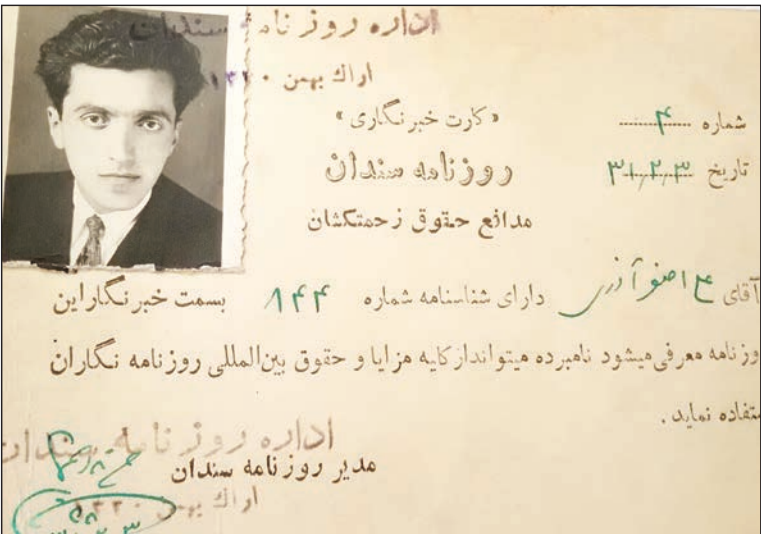 اداره روزنامه سندان
اراك بهمن ۱۳۳۰
« کارت خبرنگاری »
شماره ۴
روزنامه سندان
تاریخ ۳۱٫۲٫۳
مدافع حقوق زحمتکشان
آقای ع اصغر آذری دارای شناسنامه شماره ۸۴۴ بسمت خبرنگاراین
وزنامه معرفی میشود نامبرده میتواند ازکلیه مزایا و حقوق بین‌المللی روزنامه نگاران
ستفاده نماید .
اداره روزنامه سندان
مدیر روزنامه سندان
اراك بهمن ۱۳۳۰